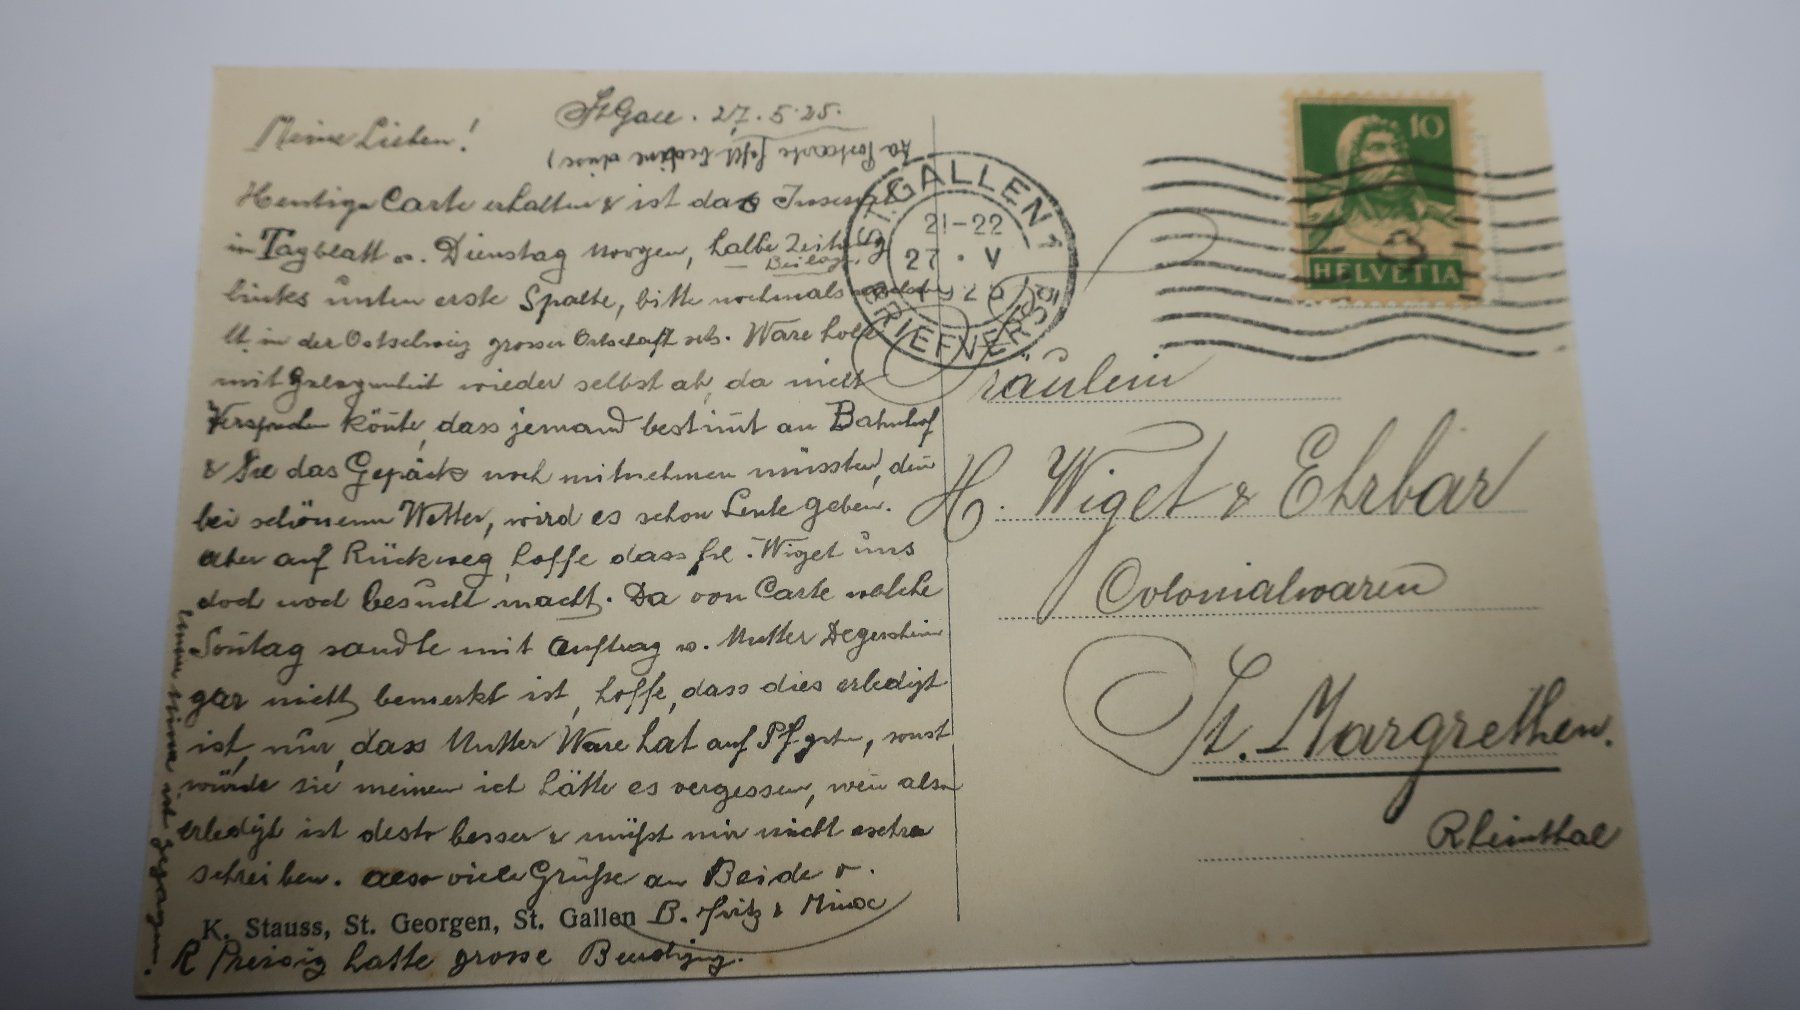 St Gall. 27.5.25.
Meine Lieben!
Heutige Carte erhalten & ist das Inserat
im Tagblatt v. Dienstag Morgen, halbe Zeitung
Beilage,
links unten erste Spalte, bitte nochmals
lt. in der Ostschweiz grosser Ortschaft etc. Ware hole
mit Gelegenheit wieder selbst ab, da nicht
Versprechen könte, dass jemand bestimt an Bahnhof
& Sie das Gepäck noch mitnehmen müssten, den
bei schönem Wetter, wird es schon Leute geben.
aber auf Rückweg, hoffe dass frl. Wiget uns
doch noch besucht macht. Da von Carte welche
Sontag sandte mit Auftrag v. Mutter Degersheim
gar nicht bemerkt ist, hoffe, dass dies erledigt
ist, nur, dass Mutter Ware hat auf Pfgsten, sonst
würde sie meinen ich hätte es vergessen, wen also
erledigt ist desto besser & müsst mir nicht extra
schreiben. also viele Grüsse an Beide v.
B. Fritz & Mina
K. Stauss, St. Georgen, St. Gallen
R Preisig hatte grosse Beerdigung.
ist gegangen.
ST. GALLEN 1
21-22
27 • V
1925
BRIEFVERS.
10
HELVETIA
Fräulein
H. Wiget & Ehrbar
Colonialwaren
St. Margrethen.
Rheinthal